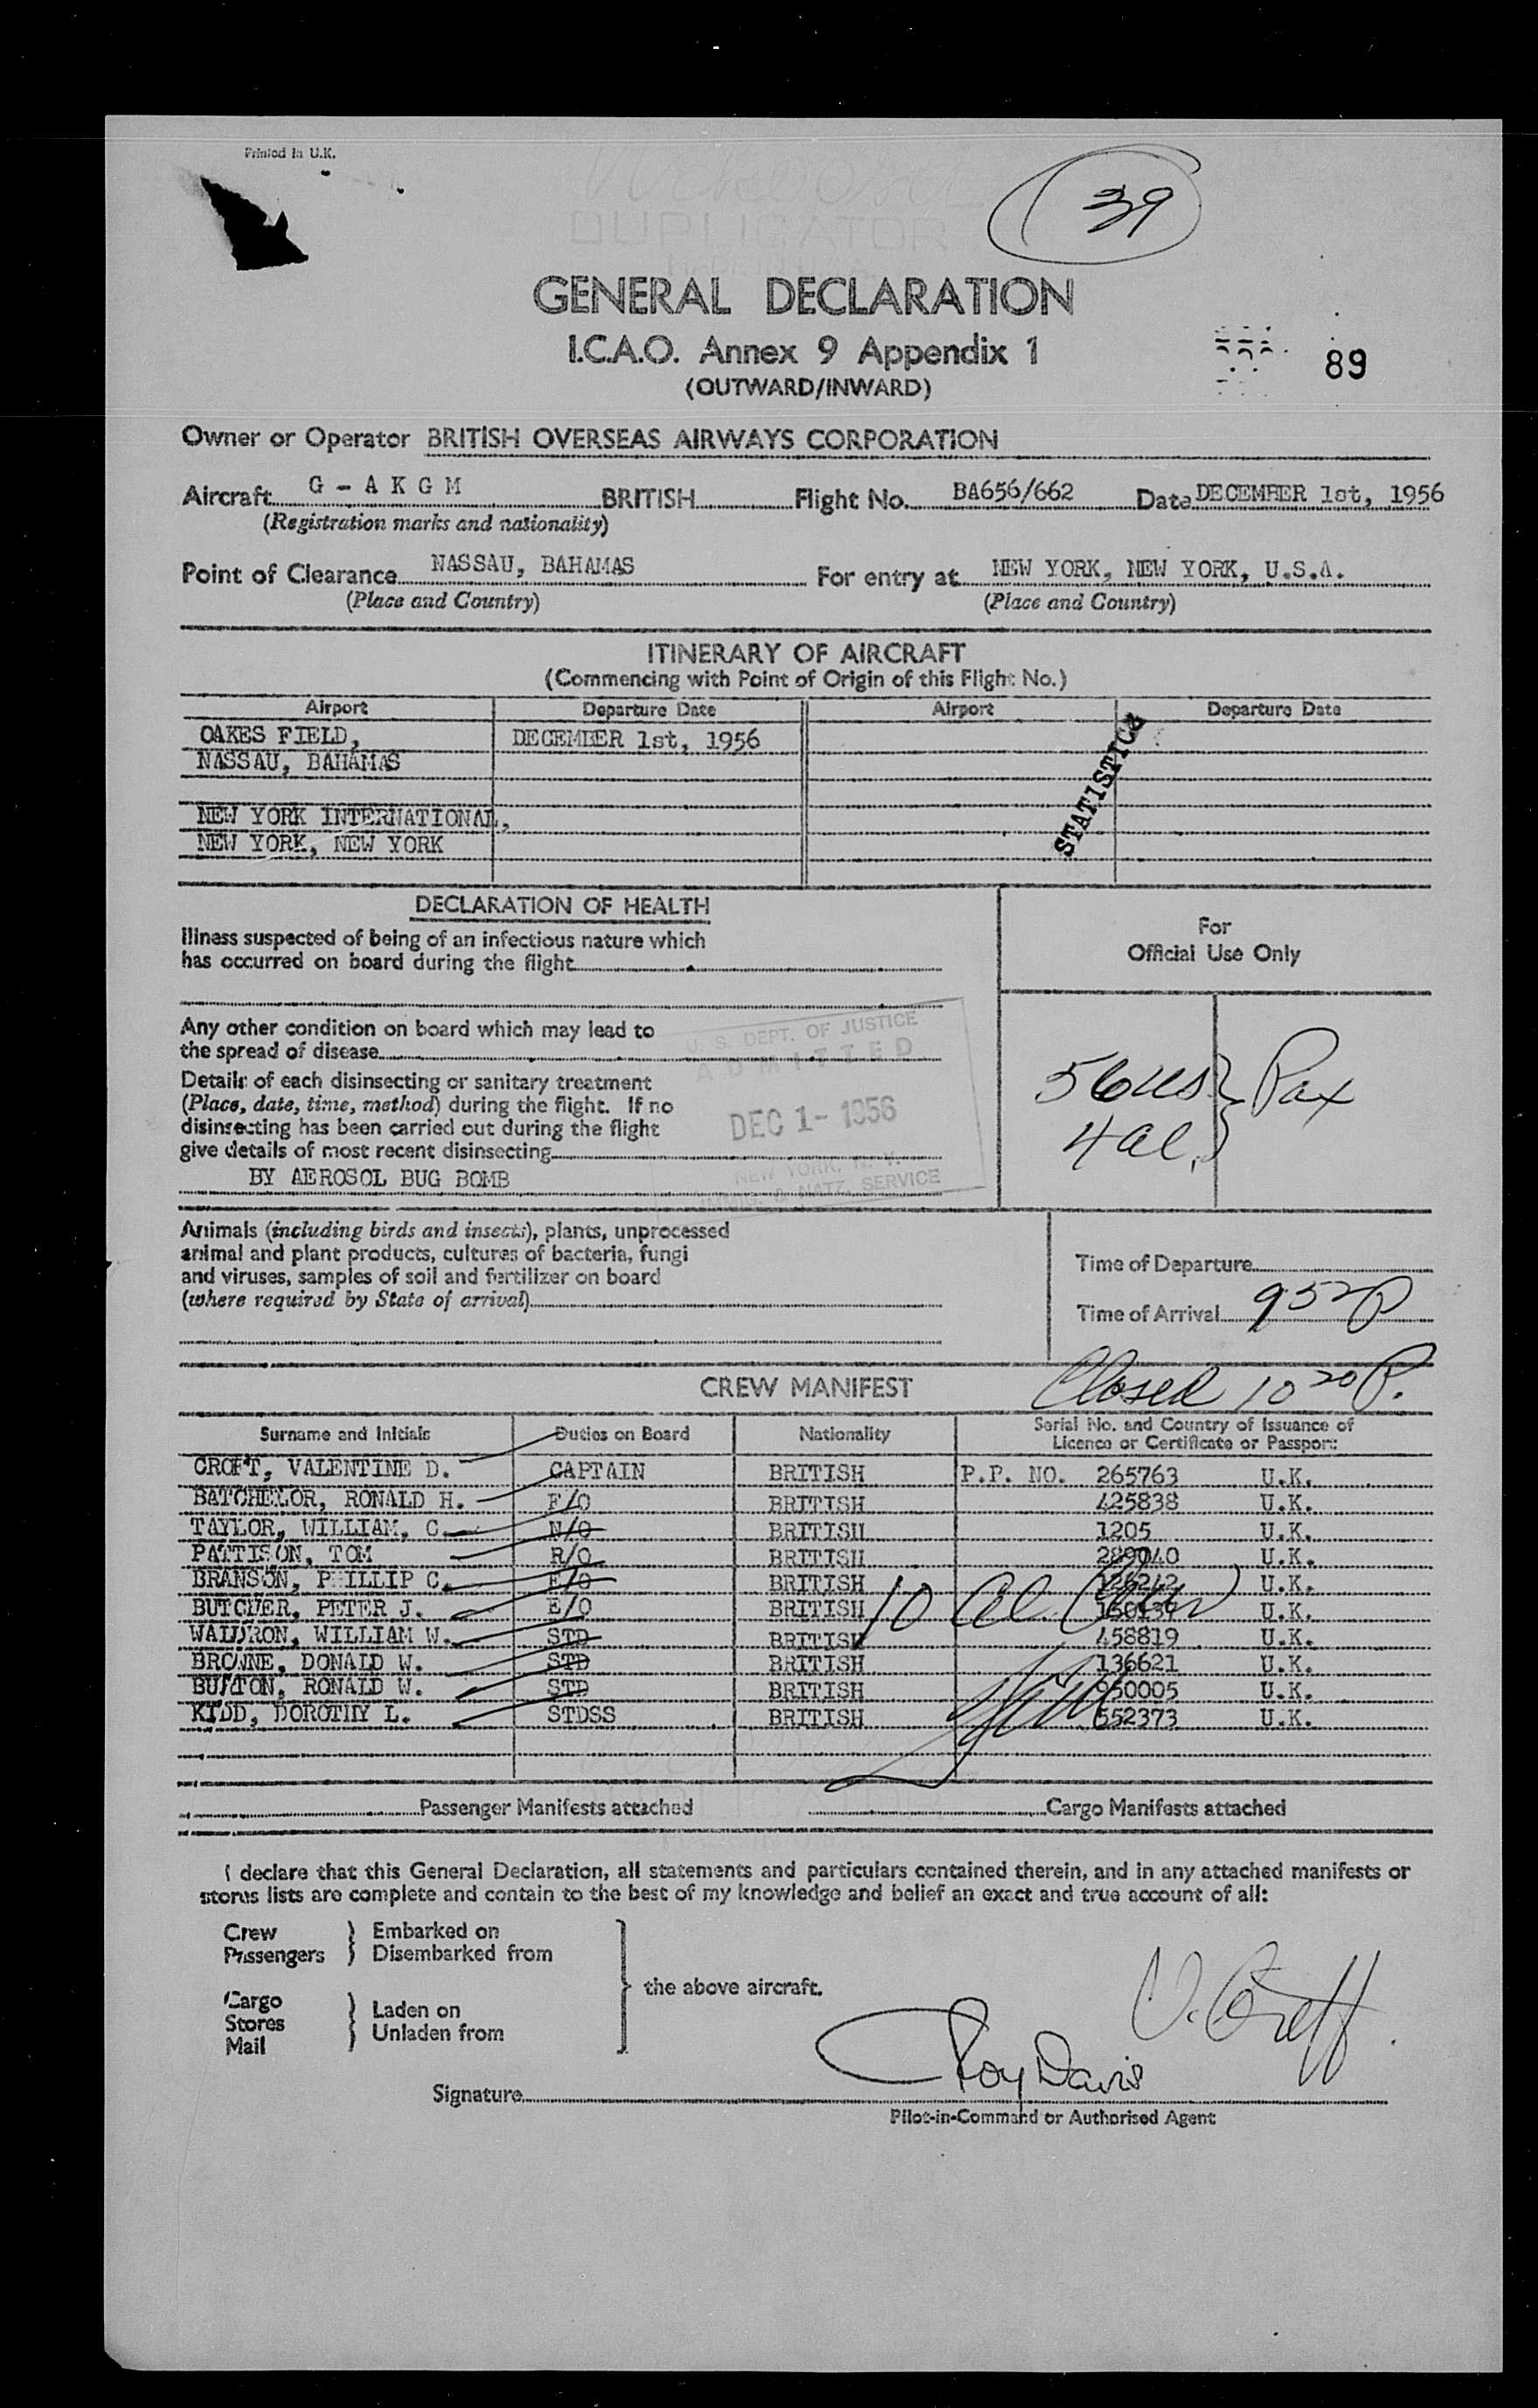 Printed in U.K.
39
DUPLICATOR
GENERAL DECLARATION
I.C.A.O. Annex 9 Appendix 1
(OUTWARD/INWARD)
89
Owner or Operator BRITISH OVERSEAS AIRWAYS CORPORATION
Aircraft G - A K G M BRITISH Flight No. BA656/662 Date DECEMBER 1st, 1956
(Registration marks and nationality)
Point of Clearance NASSAU, BAHAMAS For entry at NEW YORK, NEW YORK, U.S.A.
(Place and Country) (Place and Country)
ITINERARY OF AIRCRAFT
(Commencing with Point of Origin of this Flight No.)
Airport Departure Date Airport Departure Date
OAKES FIELD, DECEMBER 1st, 1956
NASSAU, BAHAMAS
STATISTICS
NEW YORK INTERNATIONAL,
NEW YORK, NEW YORK
DECLARATION OF HEALTH
Illness suspected of being of an infectious nature which
has occurred on board during the flight
For
Official Use Only
Any other condition on board which may lead to
the spread of disease
Details of each disinsecting or sanitary treatment
(Place, date, time, method) during the flight. If no
disinsecting has been carried out during the flight
give details of most recent disinsecting
BY AEROSOL BUG BOMB
U. S. DEPT. OF JUSTICE
ADMITTED
DEC 1- 1956
NEW YORK, N. Y.
IMMIG. & NATZ. SERVICE
56 us } Pax
4 al.
Animals (including birds and insects), plants, unprocessed
animal and plant products, cultures of bacteria, fungi
and viruses, samples of soil and fertilizer on board
(where required by State of arrival)
Time of Departure
Time of Arrival 952P
CREW MANIFEST Closed 10 20 P.
Surname and Initials Duties on Board Nationality Serial No. and Country of Issuance of
Licence or Certificate or Passport
CROFT, VALENTINE D. CAPTAIN BRITISH P.P. NO. 265763 U.K.
BATCHELOR, RONALD H. F/O BRITISH 425838 U.K.
TAYLOR, WILLIAM, C. N/O BRITISH 1205 U.K.
PATTISON, TOM R/O BRITISH 289040 U.K.
BRANSON, PHILLIP C. E/O BRITISH U.K.
BUTCHER, PETER J. E/O BRITISH U.K.
10 al. Crew
WALDRON, WILLIAM W. STD BRITISH 458819 U.K.
BROWNE, DONALD W. STD BRITISH 136621 U.K.
BURTON, RONALD W. STD BRITISH 960005 U.K.
KIDD, DOROTHY L. STDSS BRITISH 552373 U.K.
Passenger Manifests attached Cargo Manifests attached
I declare that this General Declaration, all statements and particulars contained therein, and in any attached manifests or
stores lists are complete and contain to the best of my knowledge and belief an exact and true account of all:
Crew } Embarked on
Passengers } Disembarked from
the above aircraft.
Cargo
Stores } Laden on
Mail } Unladen from
V. Croft
Roy Davis
Signature
Pilot-in-Command or Authorised Agent